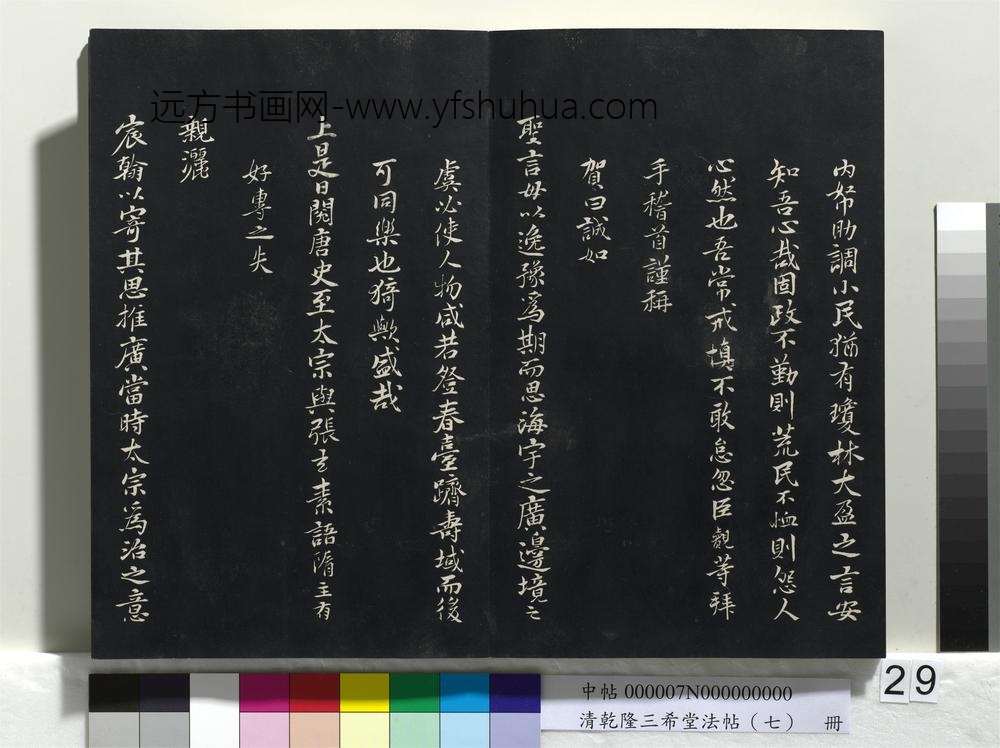 远方书画网-www.yfshuhua.com
内帑助調小民猶有瓊林大盈之言安
知吾心哉固政不勤則荒民不恤則怨人
心然也吾常戒慎不敢怠忽臣覿等拜
手稽首謹稱
賀曰誠如
聖言毋以逸豫為期而思海宇之廣邊境之
虞必使人物咸若登春臺躋壽域而後
可同樂也猗歟盛哉
上是日閱唐史至太宗與張玄素語隋主有
好專之失
親灑
宸翰以寄其思推廣當時太宗為治之意
29
中帖 000007N000000000
清乾隆三希堂法帖（七） 冊